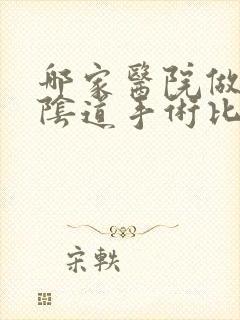 哪家醫院做
陰道手術比
宋軼